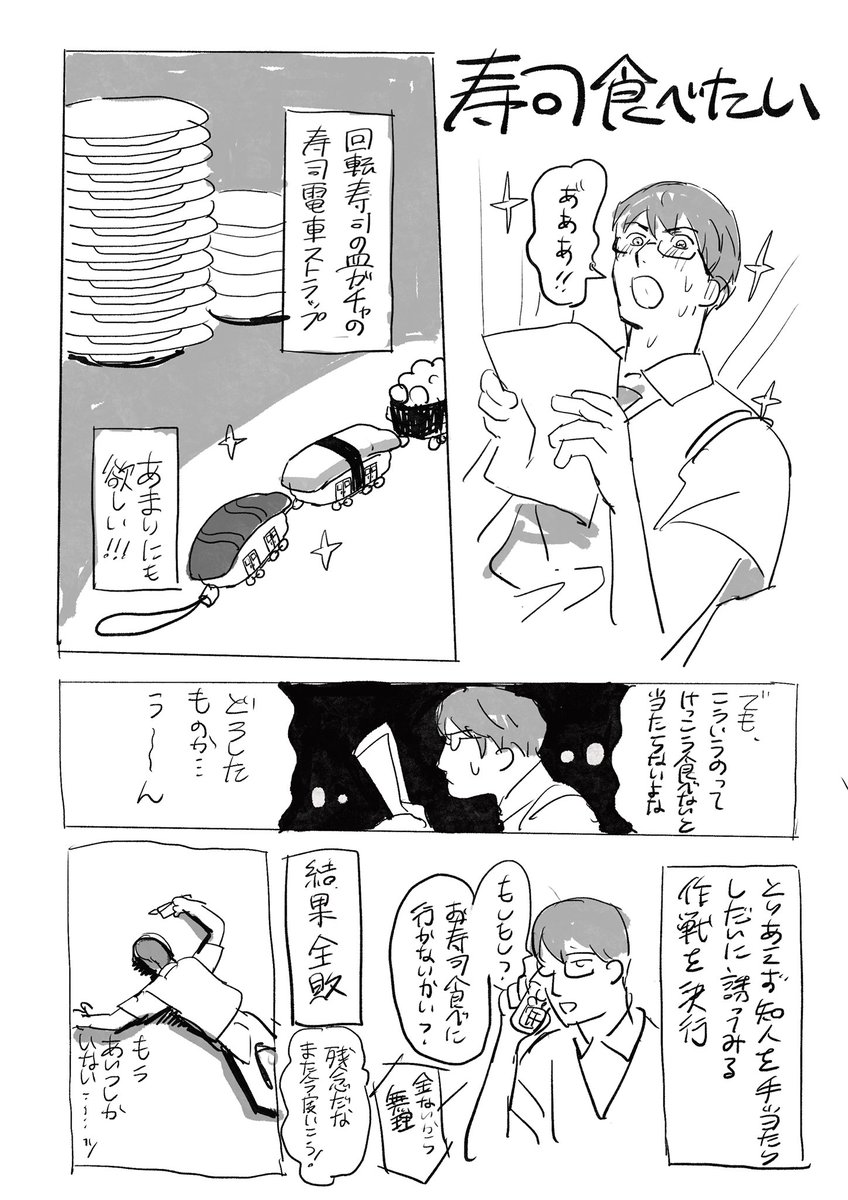 寿司食べたい
あ゛ああ!!
回転寿司の皿ガチャの
寿司電車ストラップ
あまりにも
欲しい!!!
でも、
こういうのって
けっこう食べないと
当たらないよな
どうした
ものか…
う〜〜ん
とりあえず知人を手当たり
しだいに誘ってみる
作戦を決行
もしもしっ?
お寿司食べに
行かないかい?
金ないから
無理
結果全敗
残念だな
また今度いこう!
もう
あいつしか
いない……!!